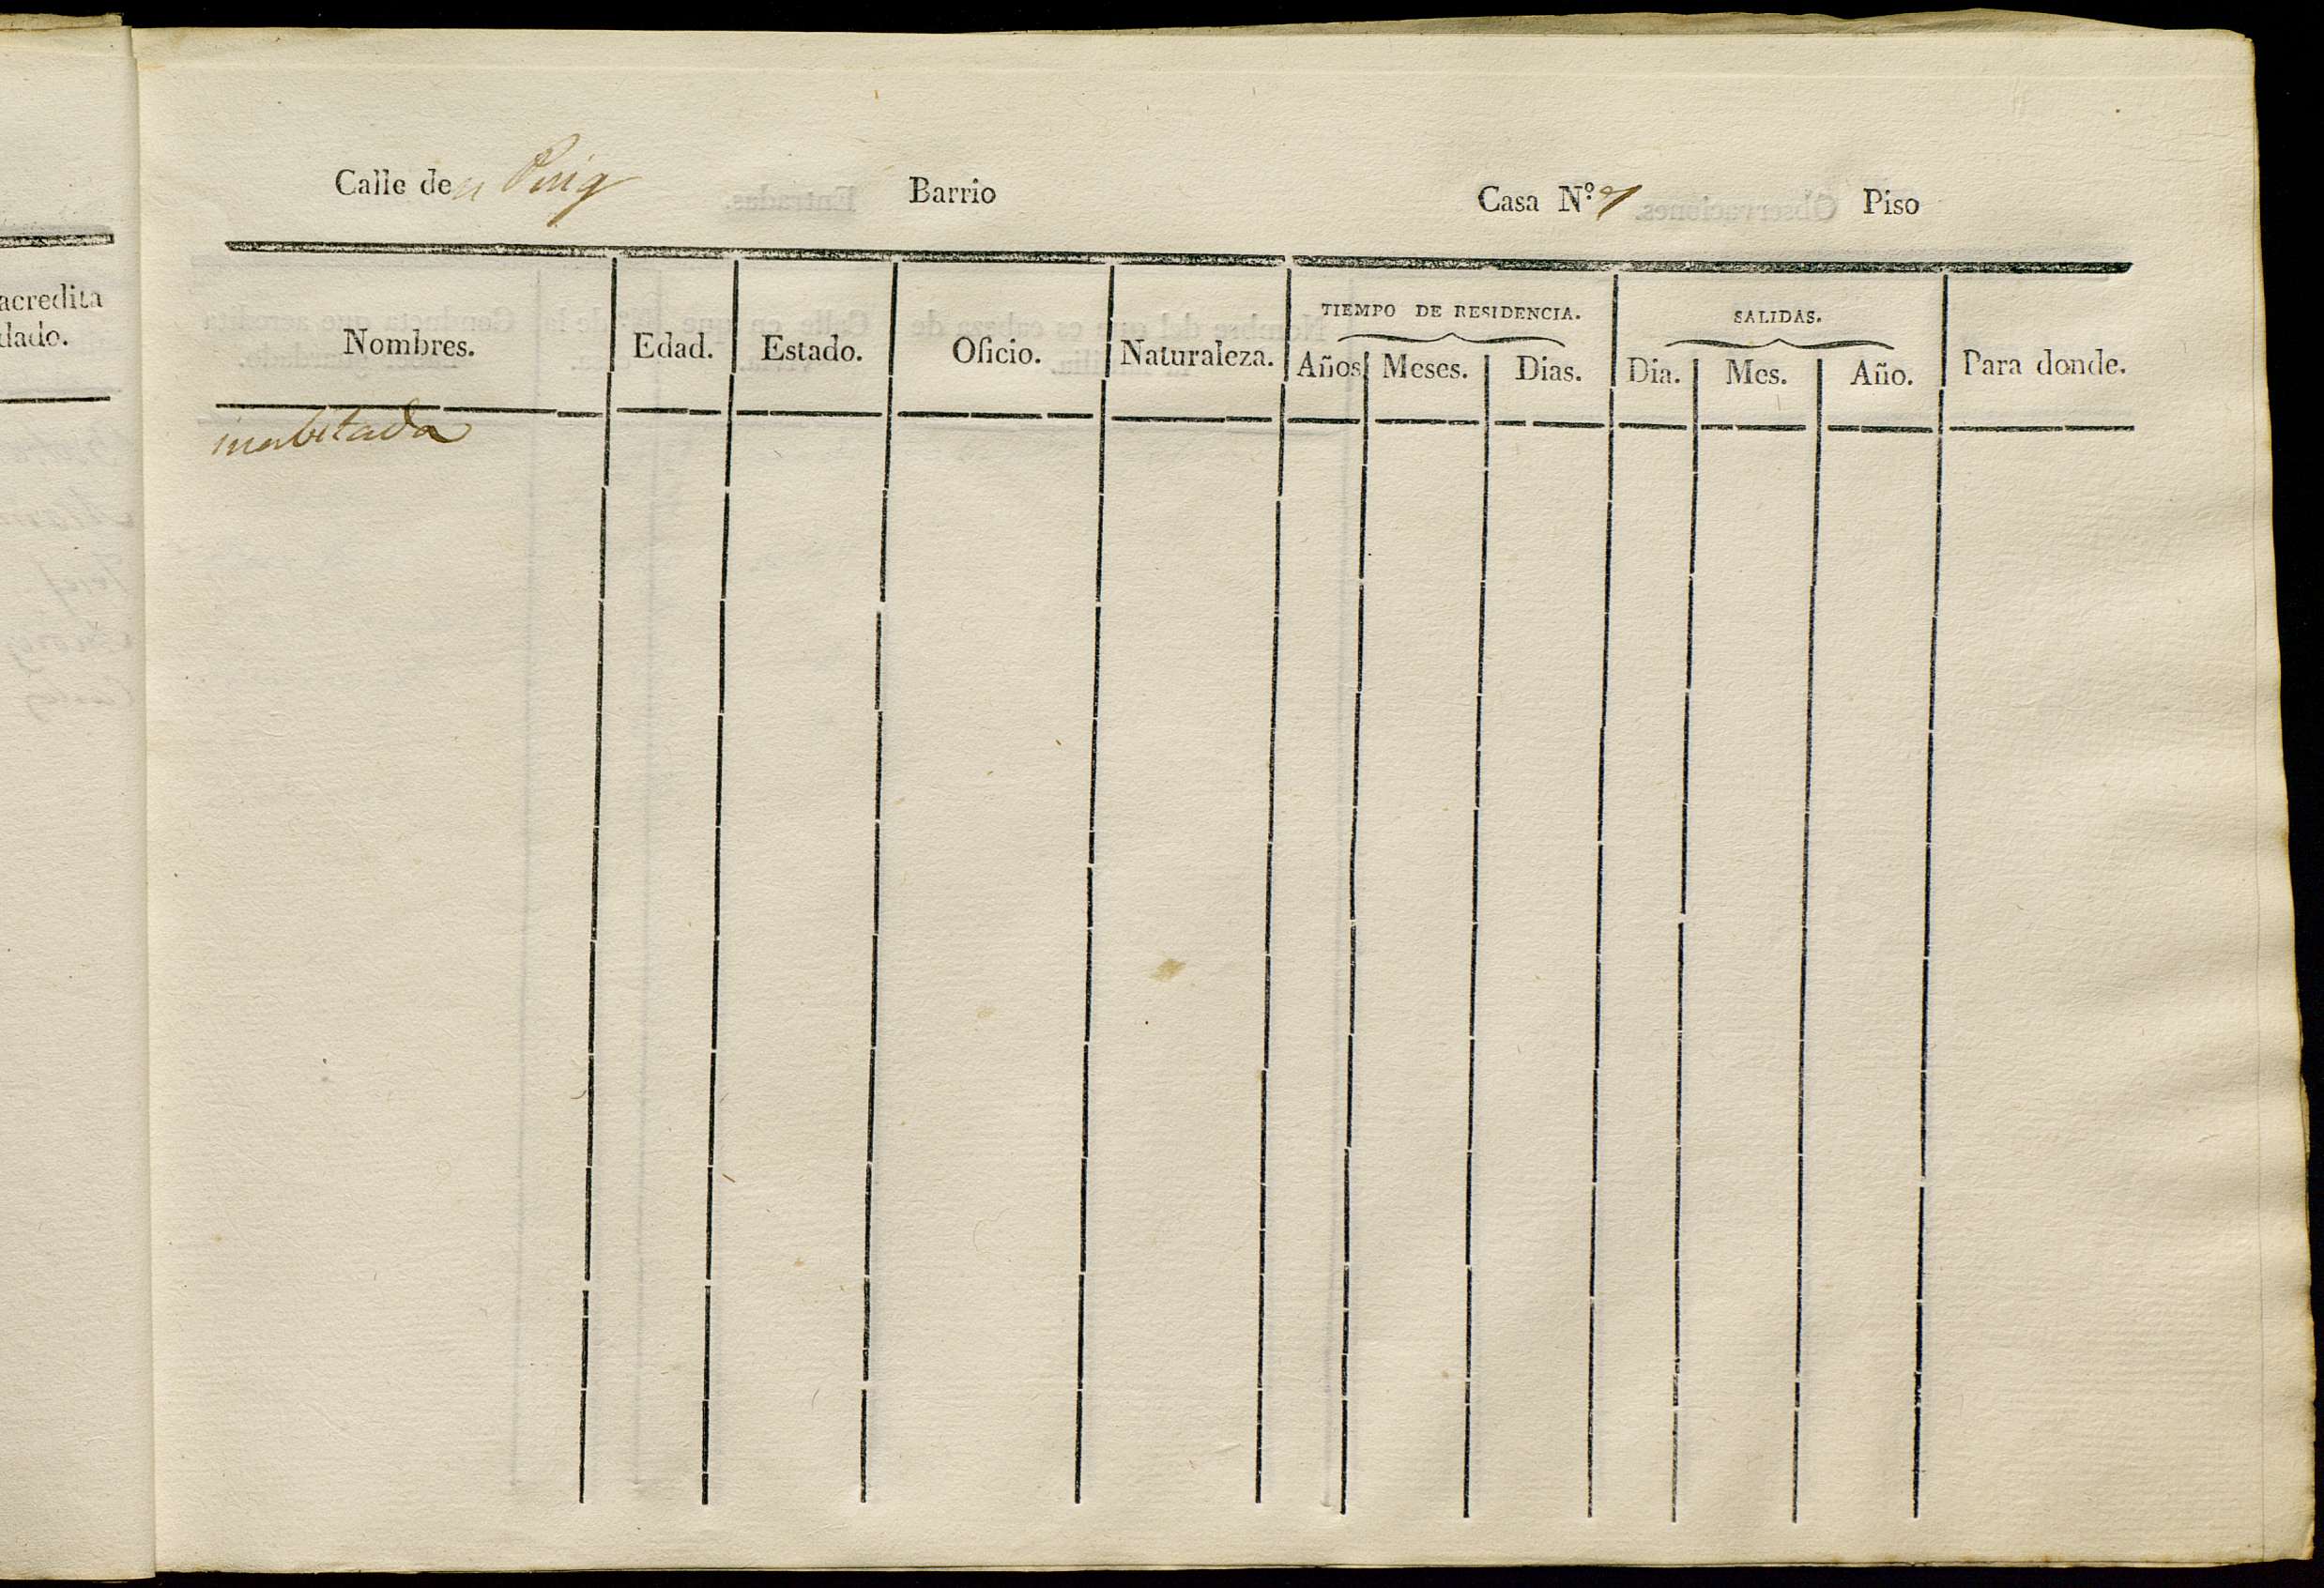 Calle den Puig Barrio Casa N.º 7 Piso
acredita
dado.
TIEMPO DE RESIDENCIA. SALIDAS.
Nombres. Edad. Estado. Oficio. Naturaleza. Años Meses. Dias. Dia. Mes. Año. Para donde.
inabitada